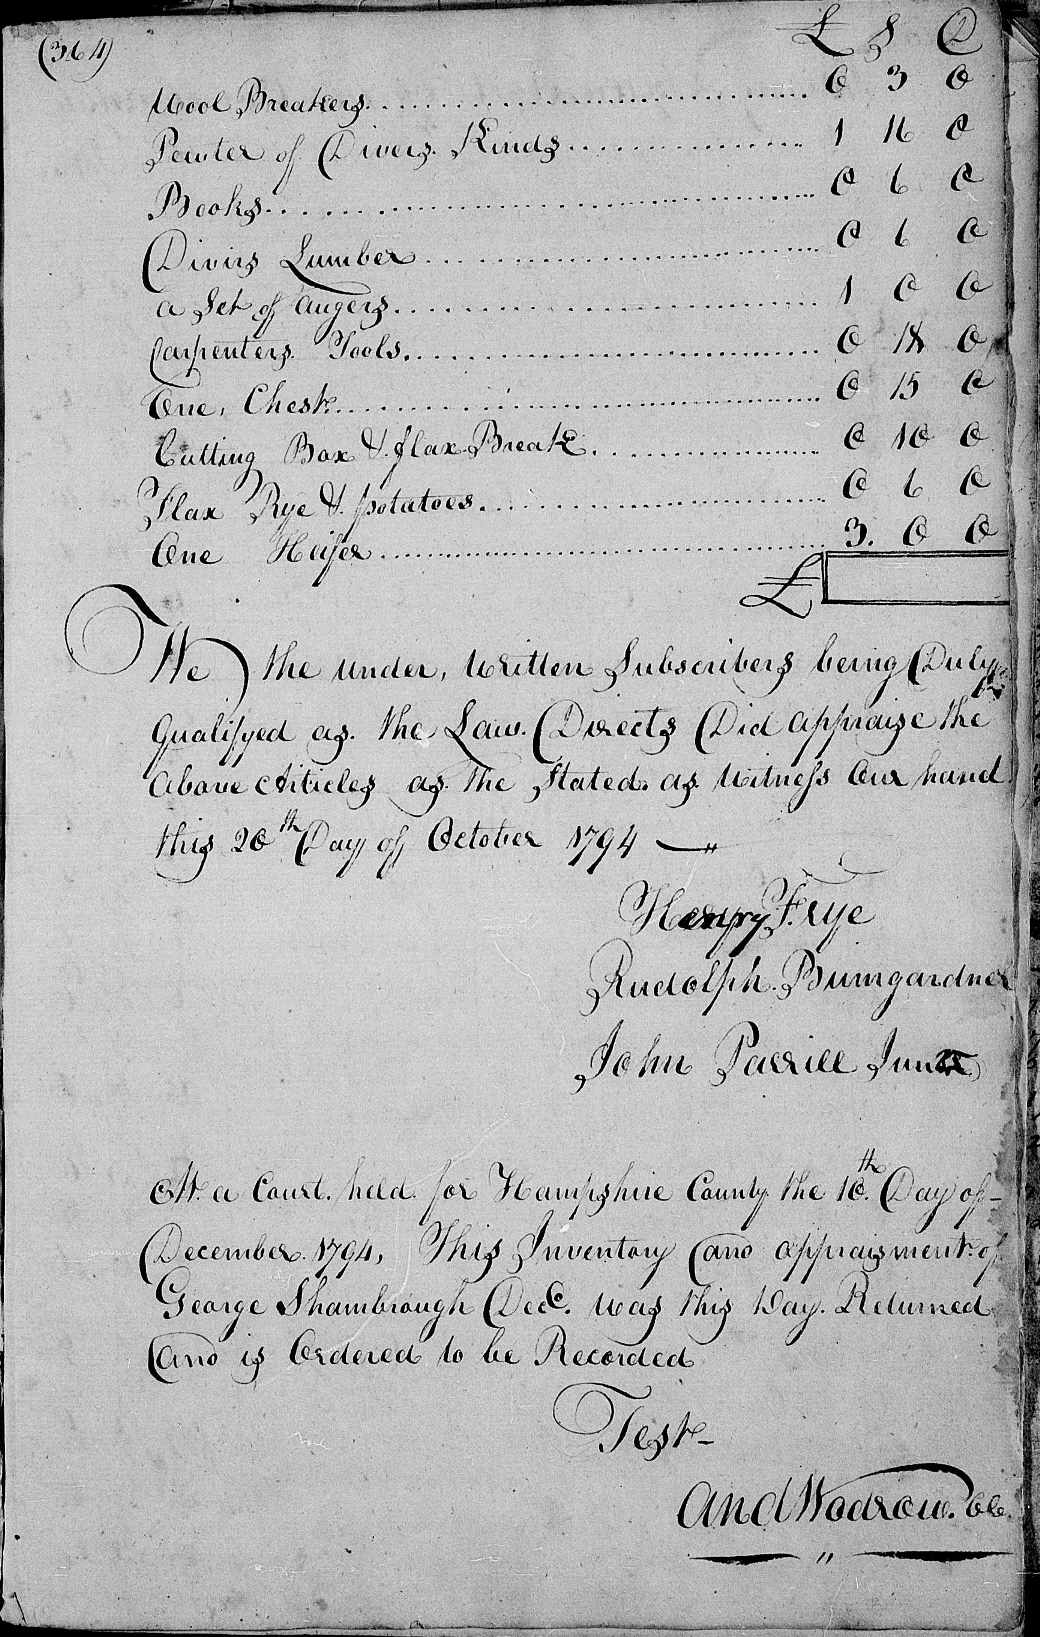 (364)
£ S D
Wool Breakers 0 3 0
Pewter of Divers Kinds 1 16 0
Books 0 6 0
Divirs Lumber 0 6 0
a Set of augers 1 0 0
Carpenters Tools 0 18 0
One Chest 0 15 0
Cutting Box & flax Break 0 10 0
Flax Rye & potatoes 0 6 0
One Heifer 3. 0 0
£
We the under, written Subscribers being Duly
Qualifyed as the Law. Directs Did appraise the
above Articles as the Stated. as Witness Our hand
this 20th Day of October 1794
Henry Frye
Rudolph Bumgardner
John Parrill Junr
At a Court. held for Hampshire County the 10th Day of
December 1794, This Inventory and appraisment of
George Shambrough Decd. was this Day. Returned
and is Ordered to be Recorded
Test
And Wodrow. CC.